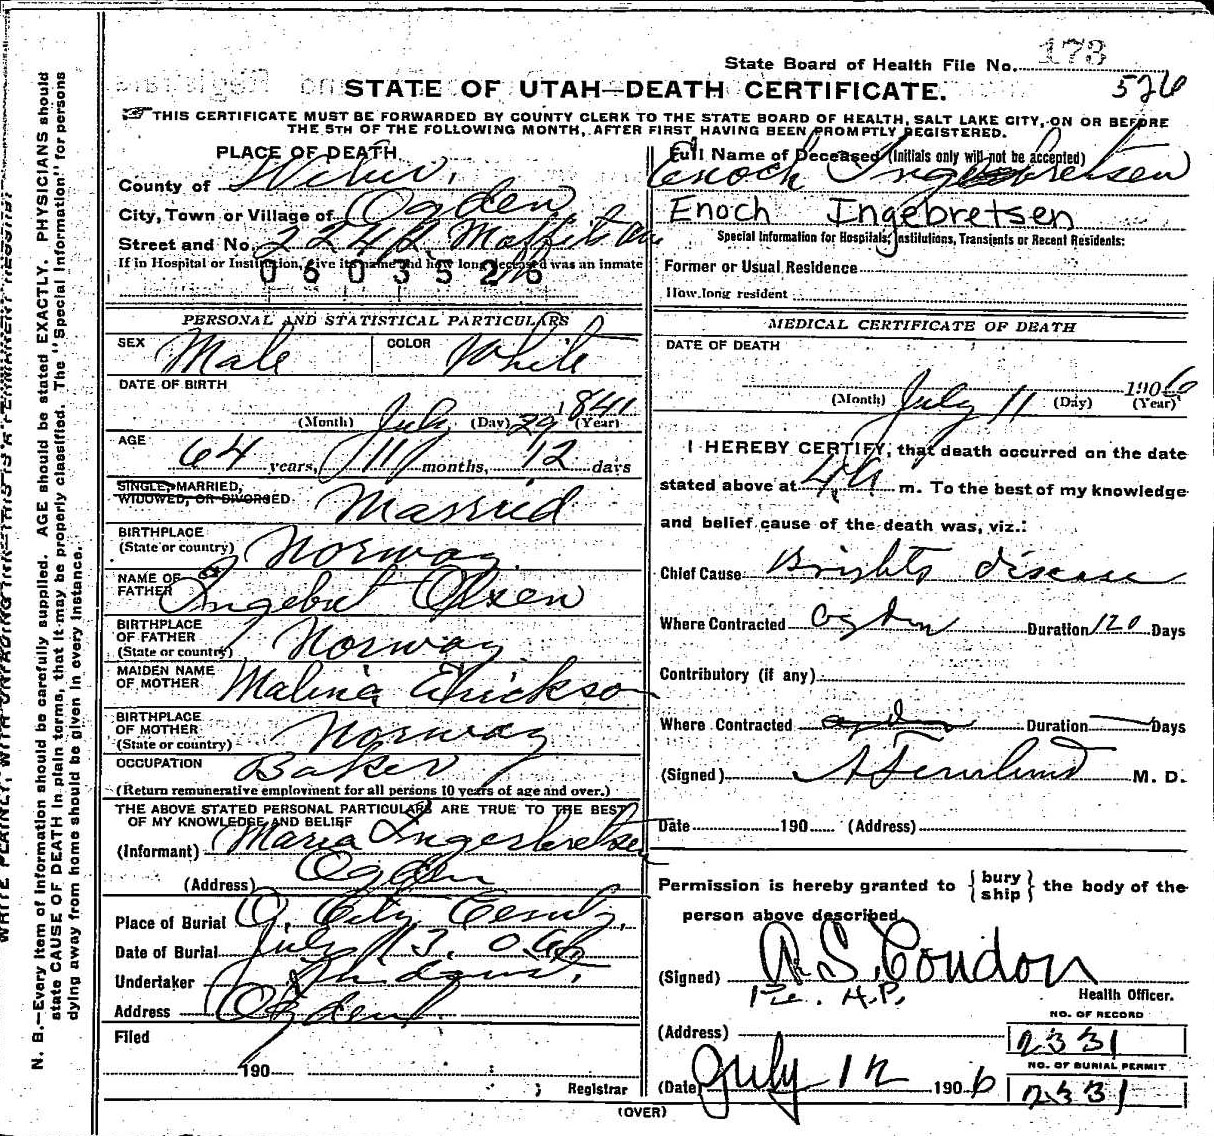 State Board of Health File No. 173
STATE OF UTAH—DEATH CERTIFICATE. 526
THIS CERTIFICATE MUST BE FORWARDED BY COUNTY CLERK TO THE STATE BOARD OF HEALTH, SALT LAKE CITY, ON OR BEFORE
THE 5TH OF THE FOLLOWING MONTH, AFTER FIRST HAVING BEEN PROMPTLY REGISTERED.
PLACE OF DEATH
County of Weber.
City, Town or Village of Ogden
Street and No. Moffits Ave
If in Hospital or Institution, give its name and how long deceased was an inmate
0603526
PERSONAL AND STATISTICAL PARTICULARS
SEX Male COLOR White
DATE OF BIRTH
(Month) July (Day) 29 1841 (Year)
AGE
64 years, 11 months, 12 days
SINGLE, MARRIED,
WIDOWED, OR DIVORSED. Married
BIRTHPLACE
(State or country) Norway
NAME OF
FATHER Ingebret Olsen
BIRTHPLACE
OF FATHER
(State or country) Norway
MAIDEN NAME
OF MOTHER Malina Erickson
BIRTHPLACE
OF MOTHER
(State or country) Norway
OCCUPATION Baker
(Return remunerative employment for all persons 10 years of age and over.)
THE ABOVE STATED PERSONAL PARTICULARS ARE TRUE TO THE BEST
OF MY KNOWLEDGE AND BELIEF
(Informant) Maria Ingerbretsen
(Address) Ogden
Place of Burial O. City Cemty.
Date of Burial July 13. 06
Undertaker
Address Ogden.
Filed
190
; Registrar
Full Name of Deceased (Initials only will not be accepted)
Enoch Ingebretsen
Enoch Ingebretsen
Special Information for Hospitals, Institutions, Transients or Recent Residents:
Former or Usual Residence
How long resident
MEDICAL CERTIFICATE OF DEATH
DATE OF DEATH
(Month) July 11 (Day) 1906 (Year)
I HEREBY CERTIFY, that death occurred on the date
stated above at 4 A m. To the best of my knowledge
and belief cause of the death was, viz.:
Chief Cause Brights disease
Where Contracted Ogden Duration 120 Days
Contributory (if any)
Where Contracted Ogden Duration Days
(Signed) M. D.
Date 190 (Address)
Permission is hereby granted to { bury
ship } the body of the
person above described.
(Signed) A. S. Condon
Health Officer.
(Address)
NO. OF RECORD
2331
NO. OF BURIAL PERMIT
2331
(Date) July 12 1906
(OVER)
N. B.—Every item of information should be carefully supplied. AGE should be stated EXACTLY. PHYSICIANS should
state CAUSE OF DEATH in plain terms, that it may be properly classified. The "Special Information" for persons
dying away from home should be given in every instance.